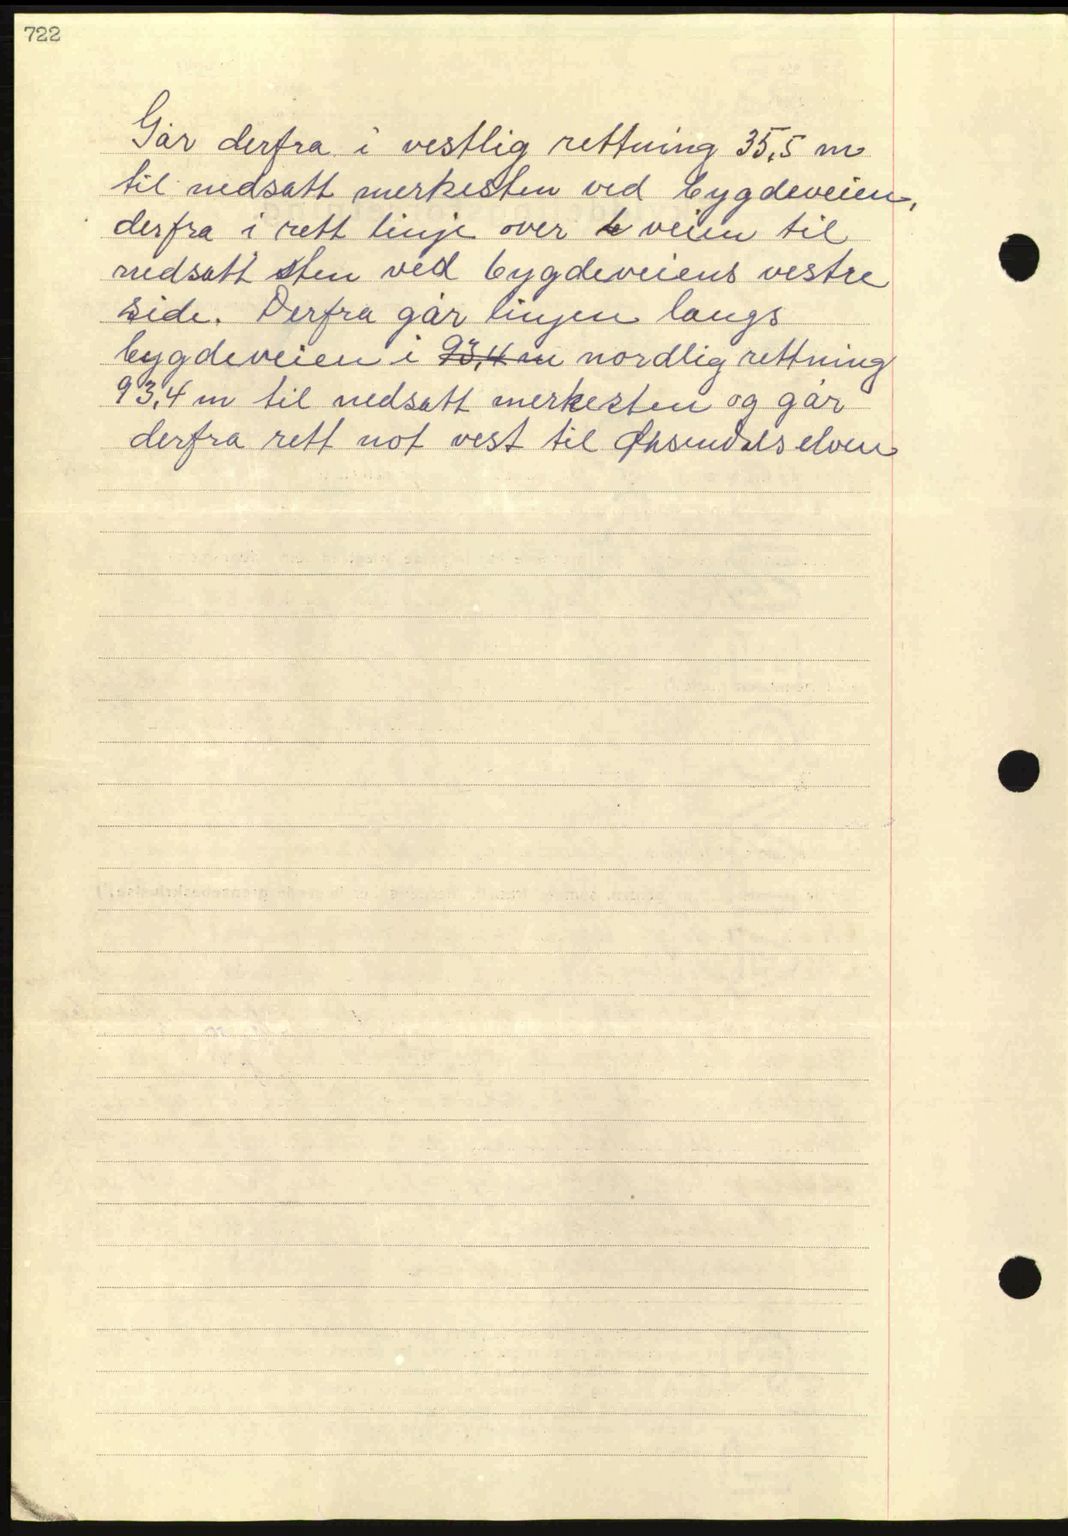 722
Går derfra i vestlig rettning 35,5 m
til nedsatt merkesten ved bygdeveien,
derfra i rett linje over veien til
nedsatt sten ved bygdeveiens vestre
side. Derfra går linjen langs
bygdeveien i 93,4 m nordlig rettning
93,4 m til nedsatt merkesten og går
derfra rett not vest til elven